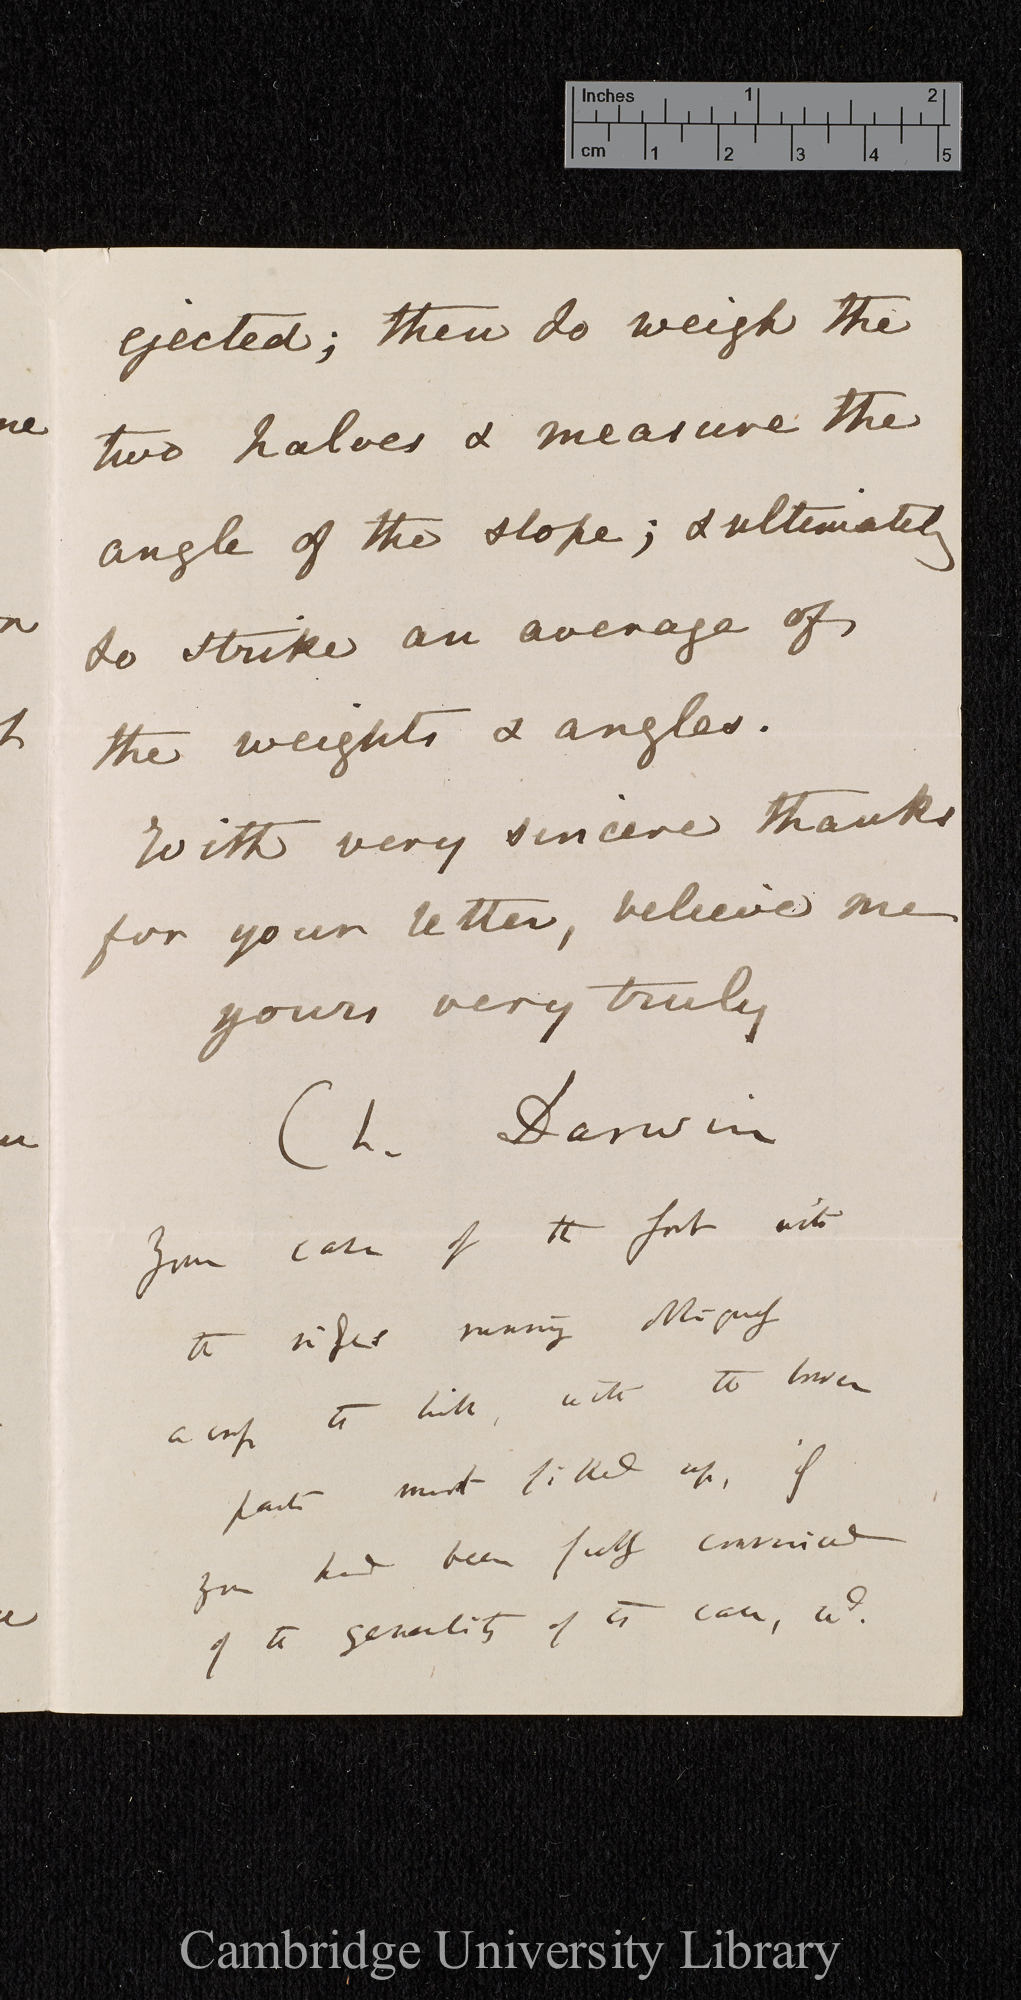 Inches 1 2
cm 1 2 3 4 5
ejected; then to weigh the
two halves & measure the
angle of the slope; & ultimately
to strike an average of
the weights & angles.
With very sincere thanks
for your letter, believe me
yours very truly
Ch. Darwin
Your case of the fort with
the ridges running obliquely
across the hill, with the lower
parts most filled up, if
you had been fully convinced
of the generality of the case, wd.
Cambridge University Library